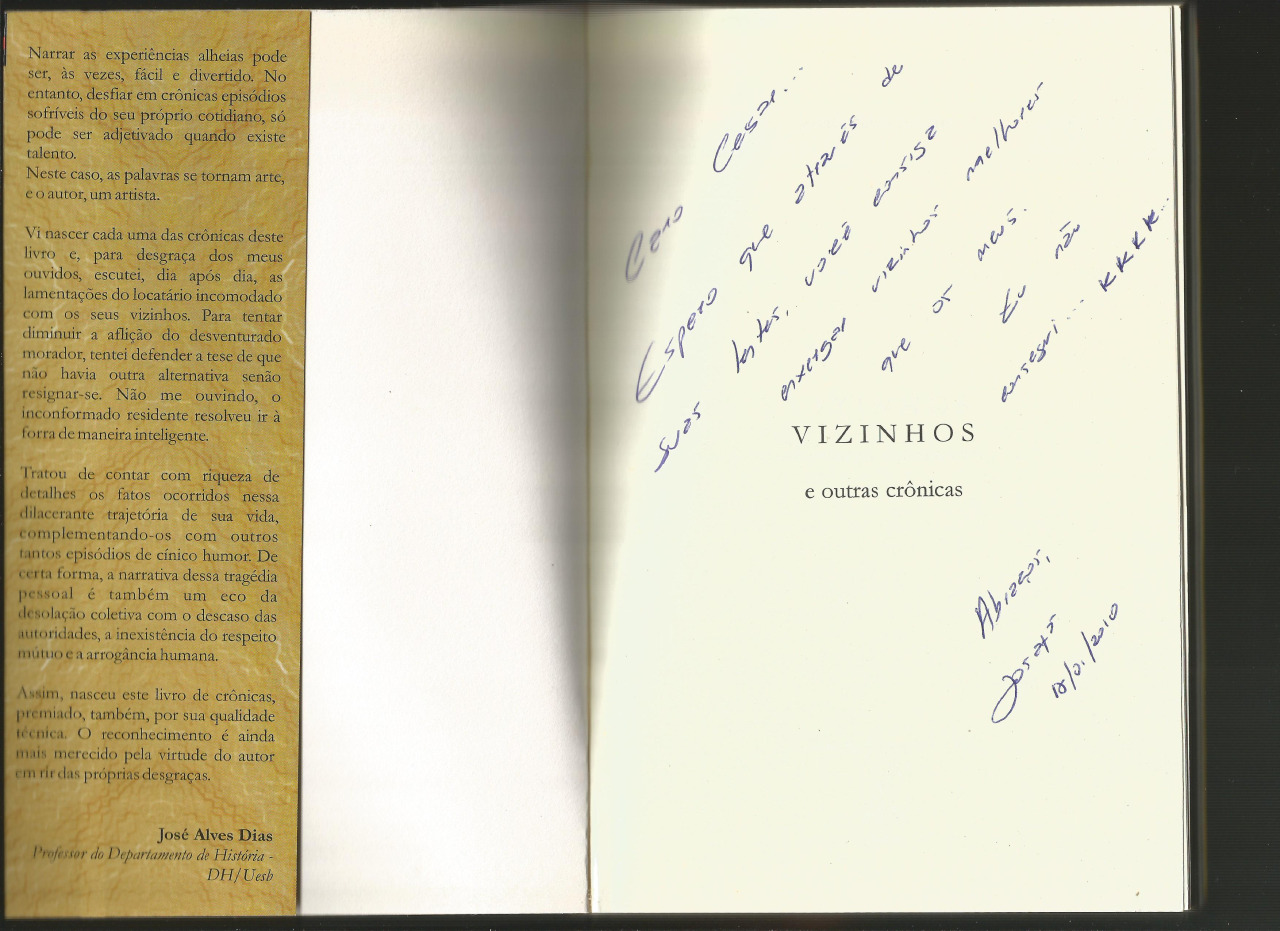 Narrar as experiências alheias pode
ser, às vezes, fácil e divertido. No
entanto, desfiar em crônicas episódios
sofríveis do seu próprio cotidiano, só
pode ser adjetivado quando existe
talento.
Neste caso, as palavras se tornam arte,
e o autor, um artista.
Vi nascer cada uma das crônicas deste
livro e, para desgraça dos meus
ouvidos, escutei, dia após dia, as
lamentações do locatário incomodado
com os seus vizinhos. Para tentar
diminuir a aflição do desventurado
morador, tentei defender a tese de que
não havia outra alternativa senão
resignar-se. Não me ouvindo, o
inconformado residente resolveu ir à
forra de maneira inteligente.
Tratou de contar com riqueza de
detalhes os fatos ocorridos nessa
dilacerante trajetória de sua vida,
complementando-os com outros
tantos episódios de cínico humor. De
certa forma, a narrativa dessa tragédia
pessoal é também um eco da
desolação coletiva com o descaso das
autoridades, a inexistência do respeito
mútuo e a arrogância humana.
Assim, nasceu este livro de crônicas,
premiado, também, por sua qualidade
técnica. O reconhecimento é ainda
mais merecido pela virtude do autor
em rir das próprias desgraças.
José Alves Dias
Professor do Departamento de História -
DH/Uesb
Caro Cesar...
Espero que através de
suas lentes, você consiga
enxergar vizinhos melhores
que os meus. Eu não
consegui... KKKK...
VIZINHOS
e outras crônicas
Abraços,
/01/2010